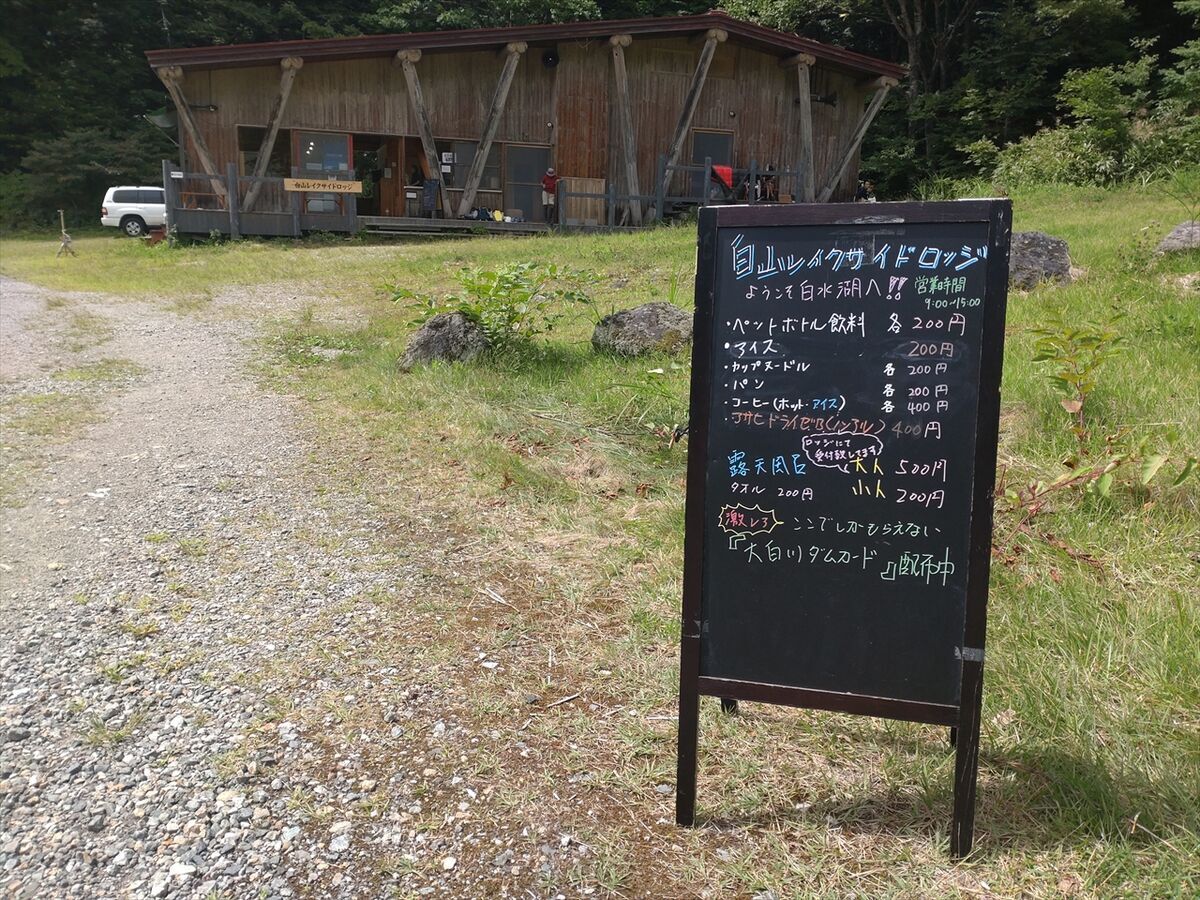 白山レイクサイドロッジ
白山レイクサイドロッジ
ようこそ白水湖へ!! 営業時間
9:00~15:00
・ペットボトル飲料 各 200円
・アイス 200円
・カップヌードル 各 200円
・パン 各 200円
・コーヒー(ホット・アイス) 各 400円
・アサヒドライゼロ(ノンアル) 400円
ロッジにて
受付致してます
露天風呂 大人 500円
タオル 200円 小人 200円
激レア ここでしかもらえない
『大白川ダムカード』配布中